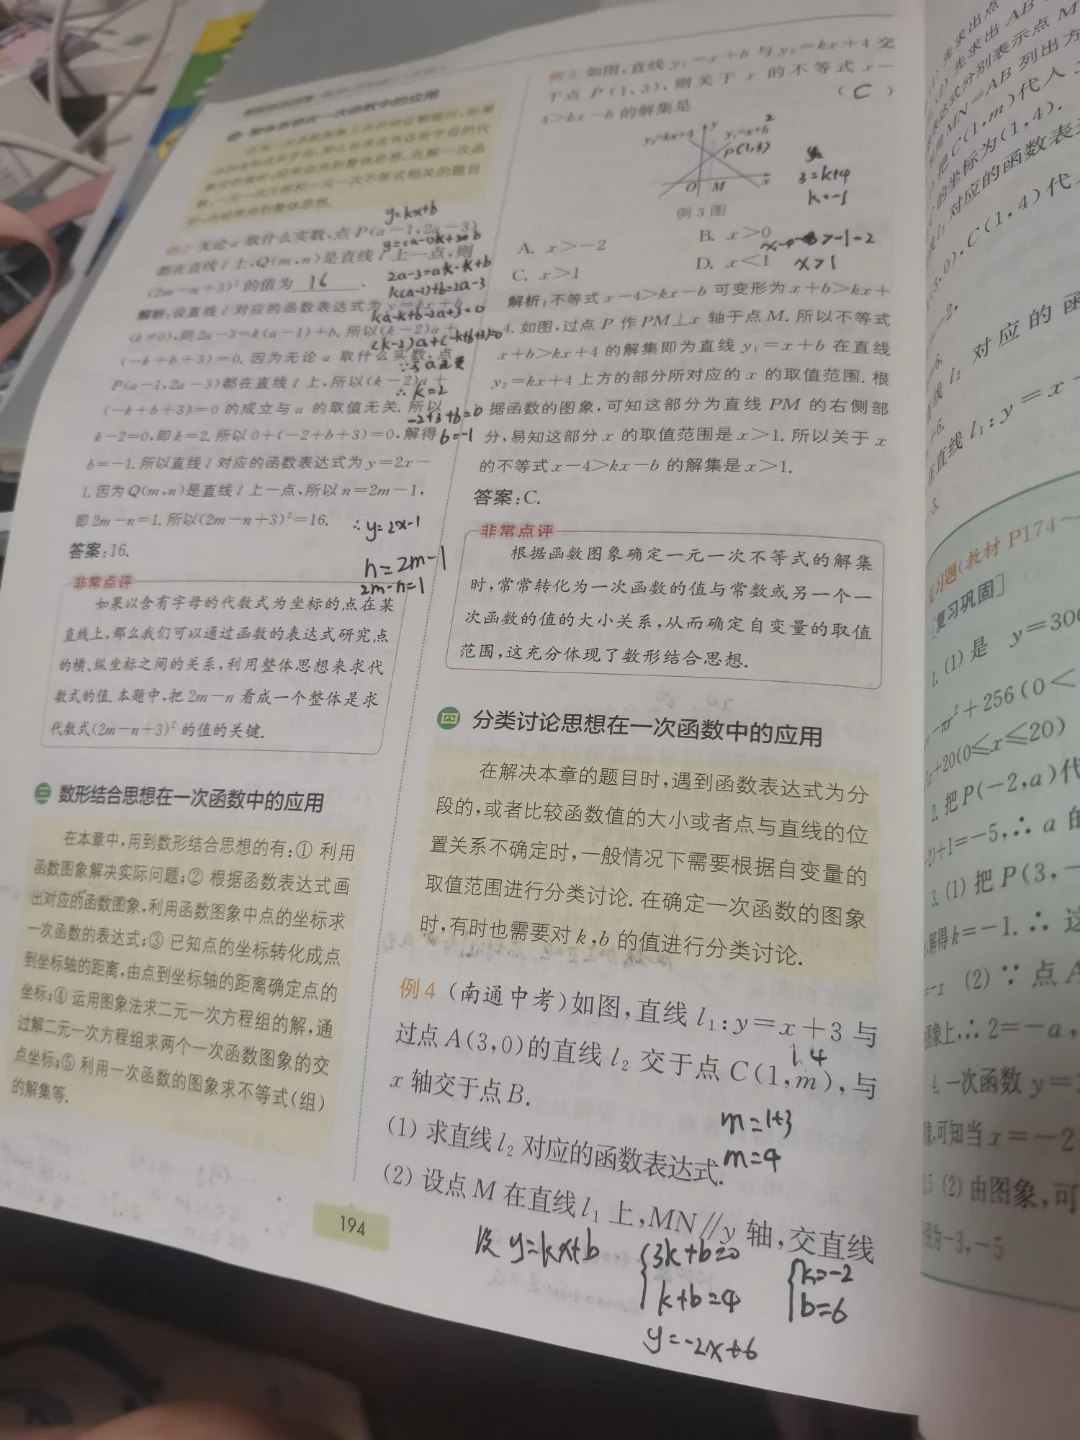 整体思想在一次函数中的应用
例2 无论a取什么实数,点P(a-1,2a-3)
都在直线l上,Q(m,n)是直线l上一点,则
(2m-n+3)²的值为 16 .
解析:设直线l对应的函数表达式为y=kx+b
(k≠0),则2a-3=k(a-1)+b.所以(k-2)a+
(-k+b+3)=0.因为无论a取什么实数,点
P(a-1,2a-3)都在直线l上,所以(k-2)a+
(-k+b+3)=0的成立与a的取值无关.所以
k-2=0,即k=2.所以0+(-2+b+3)=0,解得
b=-1.所以直线l对应的函数表达式为y=2x-
1.因为Q(m,n)是直线l上一点,所以n=2m-1,
即2m-n=1.所以(2m-n+3)²=16.
答案:16.
y=kx+b
2a-3=ak-k+b
k(a-1)+b=2a-3
ka-k+b-2a+3=0
∴k=2
-2+3+b=0
b=-1
∴y=2x-1
n=2m-1
2m-n=1
非常点评
如果以含有字母的代数式为坐标的点在某
直线上,那么我们可以通过函数的表达式研究点
的横、纵坐标之间的关系,利用整体思想来求代
数式的值.本题中,把2m-n看成一个整体是求
代数式(2m-n+3)²的值的关键.
三 数形结合思想在一次函数中的应用
在本章中,用到数形结合思想的有:①利用
函数图象解决实际问题;②根据函数表达式画
出对应的函数图象,利用函数图象中点的坐标求
一次函数的表达式;③已知点的坐标转化成点
到坐标轴的距离,由点到坐标轴的距离确定点的
坐标;④运用图象法求二元一次方程组的解,通
过解二元一次方程组求两个一次函数图象的交
点坐标;⑤利用一次函数的图象求不等式(组)
的解集等.
194
例3 如图,直线y₁=x+b与y₂=kx+4交
于点P(1,3),则关于x的不等式x-
4>kx-b的解集是 (C)
y₂=kx+4 y y₁=x+b
P(1,3)
O M x
例3图
3=k+4
k=-1
A. x>-2
B. x>0
C. x>1
D. x<1
x>1
解析:不等式x-4>kx-b可变形为x+b>kx+
4.如图,过点P作PM⊥x轴于点M.所以不等式
x+b>kx+4的解集即为直线y₁=x+b在直线
y₂=kx+4上方的部分所对应的x的取值范围.根
据函数的图象,可知这部分为直线PM的右侧部
分,易知这部分x的取值范围是x>1.所以关于x
的不等式x-4>kx-b的解集是x>1.
答案:C.
非常点评
根据函数图象确定一元一次不等式的解集
时,常常转化为一次函数的值与常数或另一个一
次函数的值的大小关系,从而确定自变量的取值
范围,这充分体现了数形结合思想.
四 分类讨论思想在一次函数中的应用
在解决本章的题目时,遇到函数表达式为分
段的,或者比较函数值的大小或者点与直线的位
置关系不确定时,一般情况下需要根据自变量的
取值范围进行分类讨论.在确定一次函数的图象
时,有时也需要对k,b的值进行分类讨论.
例4 (南通中考)如图,直线l₁:y=x+3与
过点A(3,0)的直线l₂交于点C(1,m),与
1.4
x轴交于点B.
m=1+3
(1)求直线l₂对应的函数表达式.
m=4
(2)设点M在直线l₁上,MN∥y轴,交直线
设 y=kx+b
3k+b=0
k+b=4
k=-2
b=6
y=-2x+6
(1)先求出点
(2)先求出AB
表达式分别表示点M
MN=AB列出方
把C(1,m)代入
的坐标为(1,4).
对应的函数表
(3,0),C(1,4)代
对应的函
直线l₁:y=x
习题(教材P174~
[复习巩固]
1.(1)是 y=300
-πr²+256(0<
+20(0≤x≤20)
2.把P(-2,a)代
+1=-5,∴a的
3.(1)把P(3,-
解得k=-1.∴这
(2)∵点A
图象上,∴2=-a,
4.一次函数y=
可知当x=-2
(2)由图象,可
为-3,-5